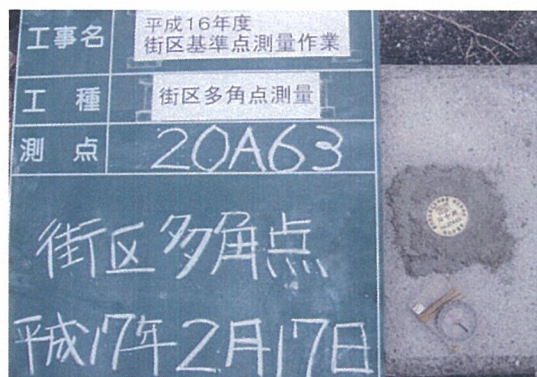 工事名
平成16年度
街区基準点測量作業
工種
街区多角点測量
測点
20A63
街区多角点
平成17年2月17日